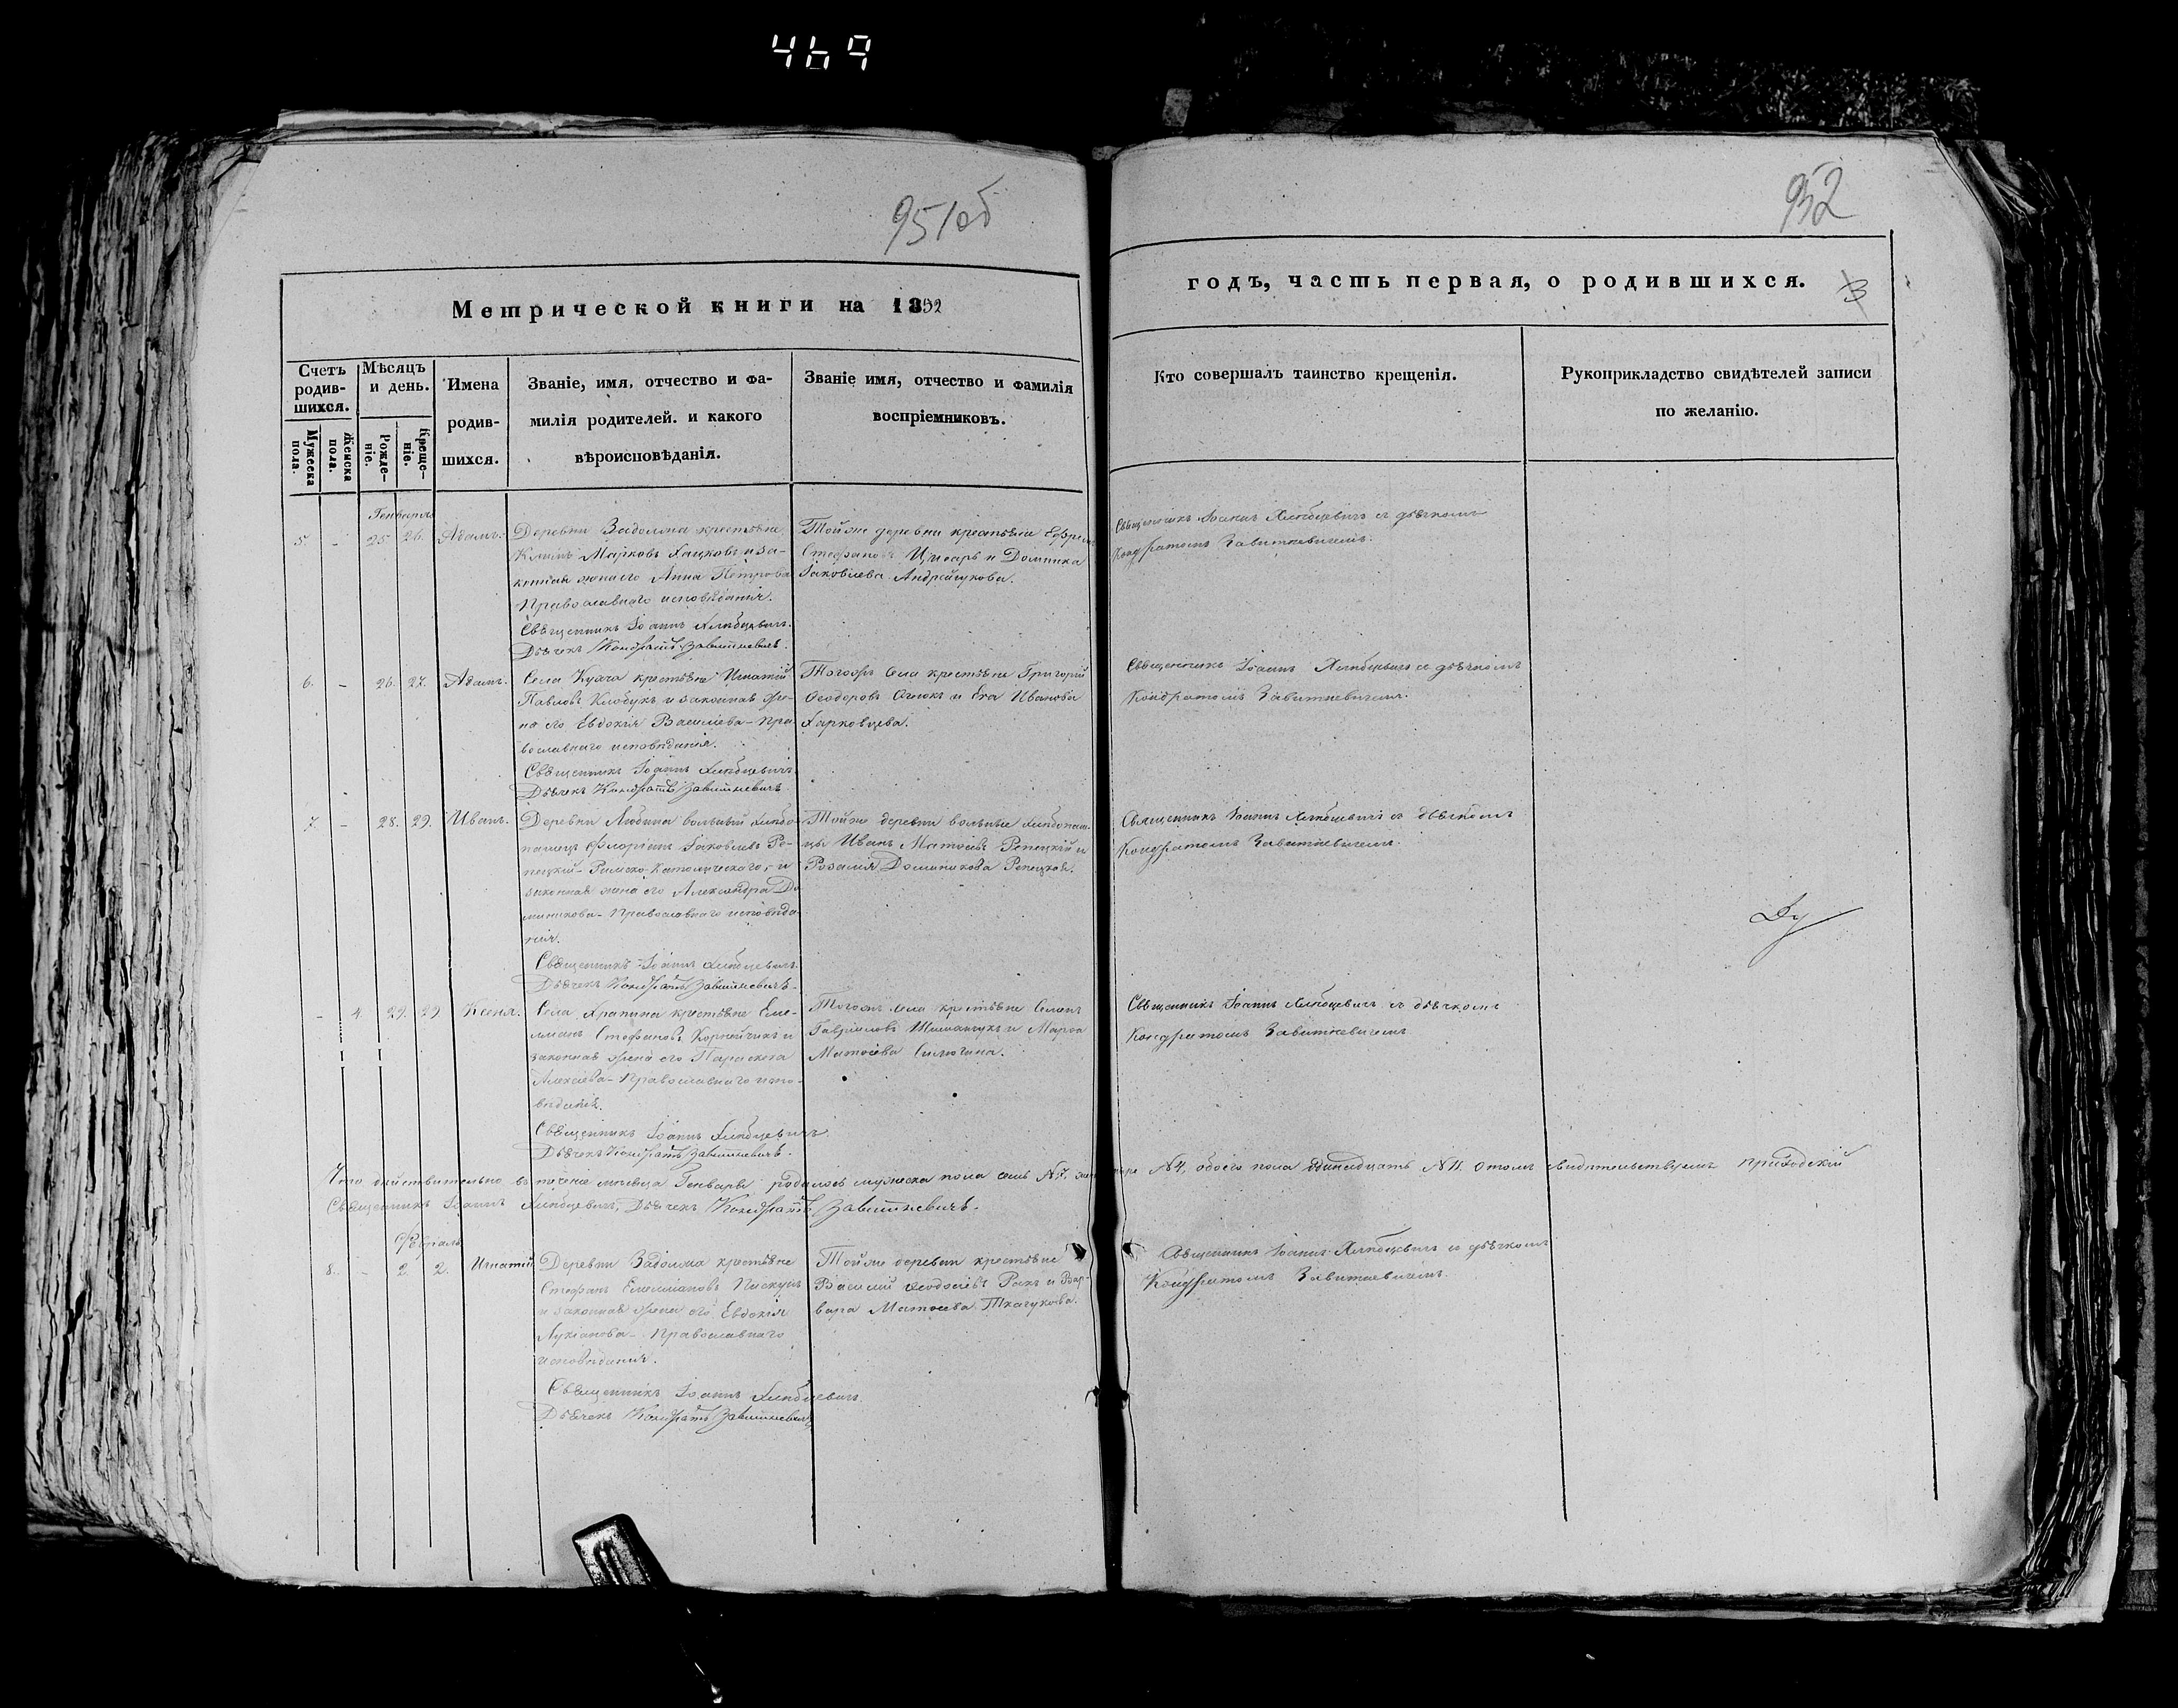 469
951об
952
Метрической книги на 1852
годъ, часть первая, о родившихся.
3
Счетъ родив-шихся.
Мужеска пола.
Женска пола.
Мѣсяцъ и день.
Рожде-ніе.
Креще-ніе.
Имена родив-шихся.
Званіе, имя, отчество и фа-
милія родителей. и какого
вѣроисповѣданія.
Званіе имя, отчество и фамилія
воспріемниковъ.
Кто совершалъ таинство крещенія.
Рукоприкладство свидѣтелей записи
по желанію.
Генварь
5 - 25 26. Адамъ.
Деревни Задолжа крестьяне
Климъ Марковъ Хацковъ и за-
конная жена его Анна Петрова
Православнаго исповѣданія.
Священникъ Іоаннъ Хлѣбцевичъ.
Дьячекъ Кондратъ Завитневичъ.
Той же деревни крестьяне Ефремъ
Стефановъ Цысарь и Домника
Іаковлева Андрейчукова.
Священникъ Іоаннъ Хлѣбцевичъ съ дьячкомъ
Кондратомъ Завитневичемъ.
6. - 26. 27. Адамъ.
Села крестьяне Игнатій
Павловъ Клобукъ и законная же-
на его Евдокія Василіева - Пра-
вославнаго исповѣданія.
Священникъ Іоаннъ Хлѣбцевичъ
Дьячекъ Кондратъ Завитневичъ
Тогожъ села крестьяне Григорій
Ѳеодоровъ и Ева Иванова
Харковцева.
Священникъ Іоаннъ Хлѣбцевичъ съ дьячкомъ
Кондратомъ Завитневичемъ.
7. - 28. 29. Иванъ.
Деревни Людина вольный хлѣбо-
пашецъ Флоріанъ Іаковлевъ Ре-
пецкій - Римско-Католическаго, - и
законная жена его Александра До
миникова - Православнаго исповѣда-
нія.
Священникъ Іоаннъ Хлѣбцевичъ.
Дьячекъ Кондратъ Завитневичъ.
Той же деревни вольные хлѣбопаш-
цы Иванъ Матѳеевъ Репецкій и
Розалія Доминикова Репецков.
Священникъ Іоаннъ Хлѣбцевичъ съ дьячкомъ
Кондратомъ Завитневичемъ.
- 4. 29. 29 Ксенія.
Села Храпина крестьяне Еме-
ліанъ Стефановъ Корнейчикъ и
законная жена его Параскева
Алексіева - Православнаго испо-
вѣданія.
Священникъ Іоаннъ Хлѣбцевичъ.
Дьячекъ Кондратъ Завитневичъ.
Тогожъ села крестьяне Семенъ
Гавріиловъ Шиманчукъ и Марѳа
Матѳеева Силючина.
Священникъ Іоаннъ Хлѣбцевичъ съ дьячкомъ
Кондратомъ Завитневичемъ
Что дѣйствительно въ теченіе мѣсяца Генваря родилось мужеска пола семь №7. №4, обоего пола одинадцать №11. о томъ свидѣтельствуемъ приходскій
Священникъ Іоаннъ Хлѣбцевичъ, Дьячекъ Кондратъ Завитневичъ.
Февраль
8. - 2. 2. Игнатій
Деревни Задолжа крестьяне
Стефанъ Емеліановъ Пискунъ
и законная жена его Евдокія
Лукіанова - Православнаго
исповѣданія.
Священникъ Іоаннъ Хлѣбцевичъ.
Дьячекъ Кондратъ Завитневичъ
Той же деревни крестьяне
Василій Ѳеодосіевъ Ракъ и Вар-
вара Матѳеева Ткачукова.
Священникъ Іоаннъ Хлѣбцевичъ съ дьячкомъ
Кондратомъ Завитневичемъ.